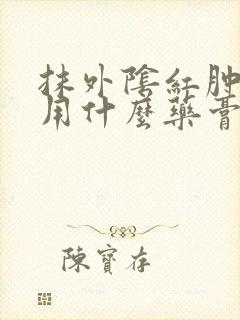 抹外陰紅肿
用什麼藥膏
陳寶存